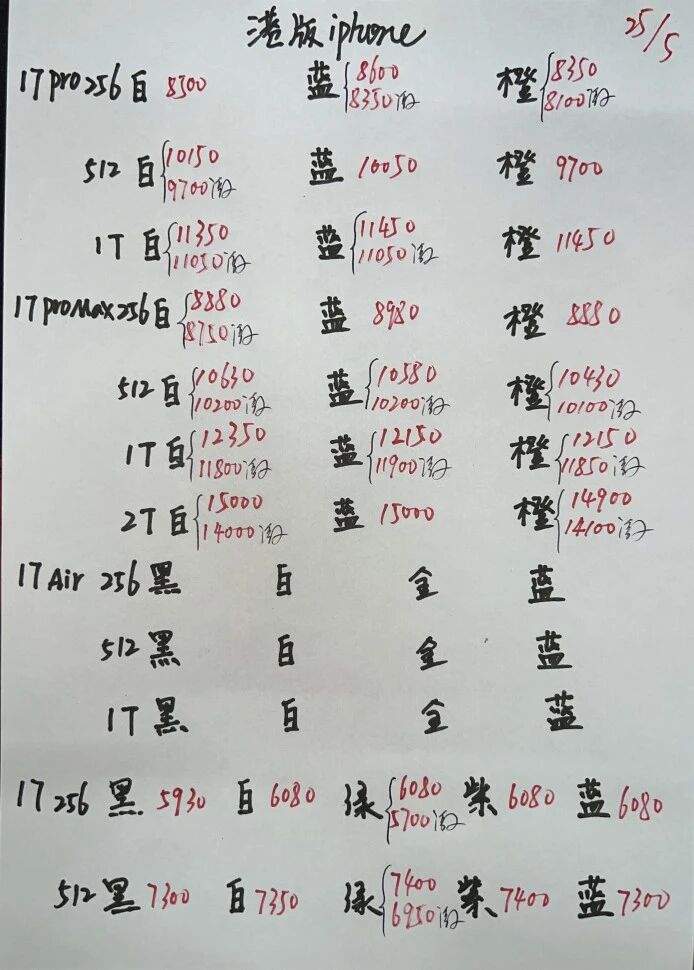 港版iphone 25/5
17pro256白 8300 蓝 8600 橙 8350
8350激 8100激
512白 10150 蓝 10050 橙 9700
9700激
1T白 11350 蓝 11450 橙 11450
11050激 11050激
17proMax256白 8880 蓝 8980 橙 8880
8750激
512白 10630 蓝 10580 橙 10430
10200激 10200激 10100激
1T白 12350 蓝 12150 橙 12150
11800激 11900激 11850激
2T白 15000 蓝 15000 橙 14900
14000激 14100激
17Air 256黑 白 金 蓝
512黑 白 金 蓝
1T黑 白 金 蓝
17 256 黑 5930 白 6080 绿 6080 紫 6080 蓝 6080
5700激
512黑 7300 白 7350 绿 7400 紫 7400 蓝 7300
6950激